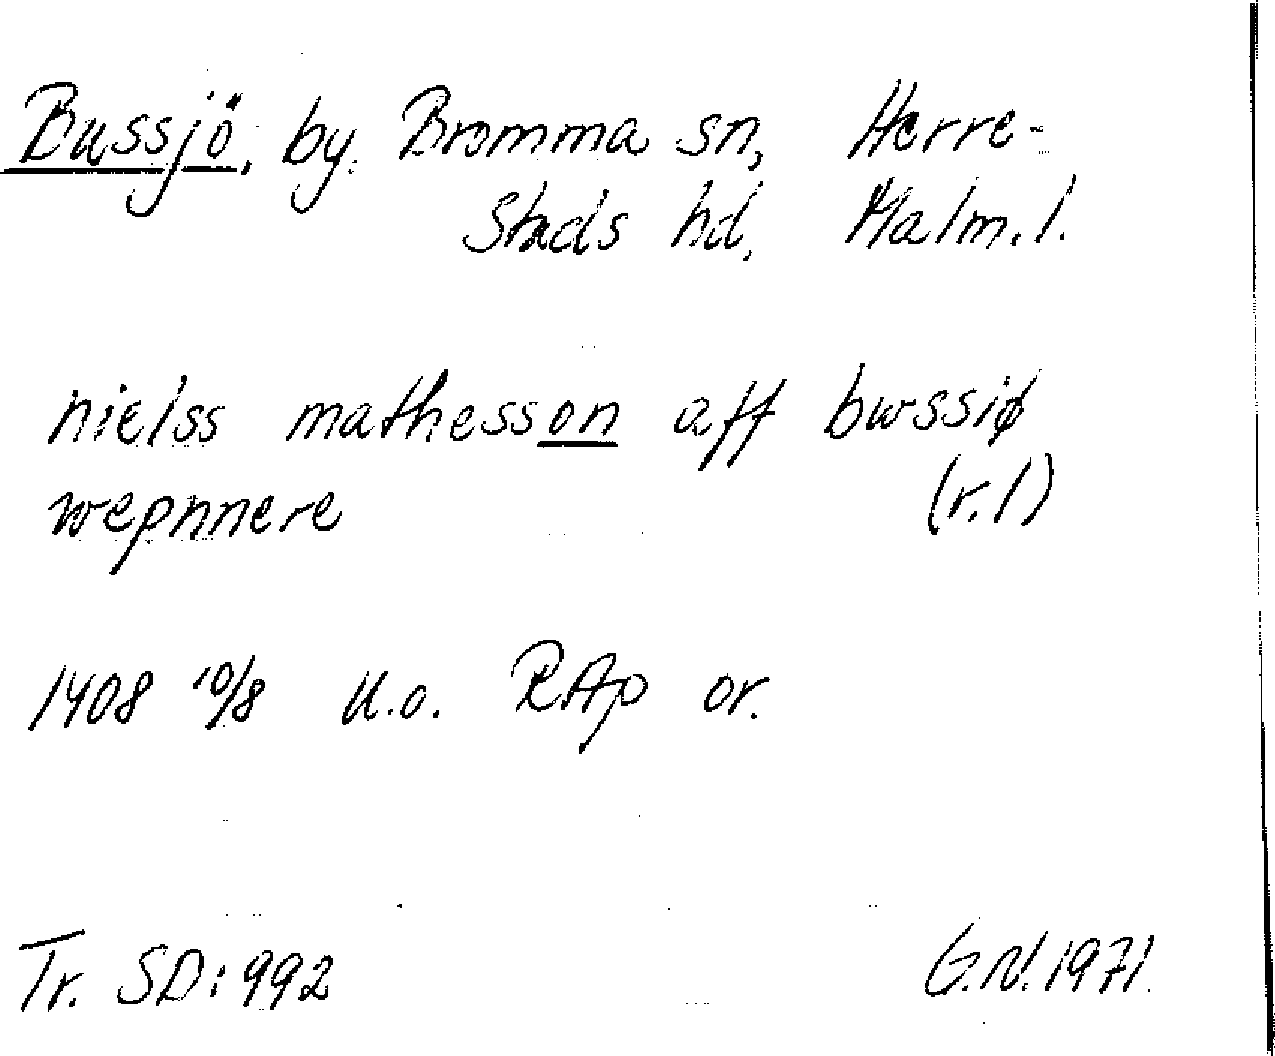 Bussjö, by. Bromma sn, Herre-
stads hd, Malm. l.
nielss mathesson aff bwssiø
wepnnere (r. 1)
1408 10/8 u.o. RAp or.
Tr. SD: 992 G.N. 1971.